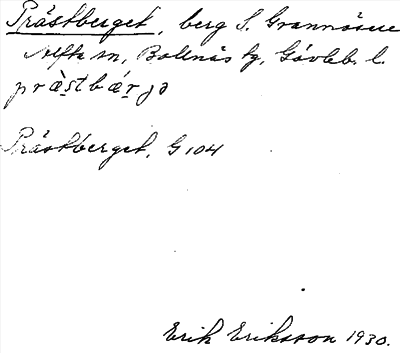 Prästberget, berg S. Grannäsen
Alfta sn, Bollnäs tg, Gävleb. l.
præ̀stbǽrjə
Prästberget, G 104
Erik Eriksson 1930.